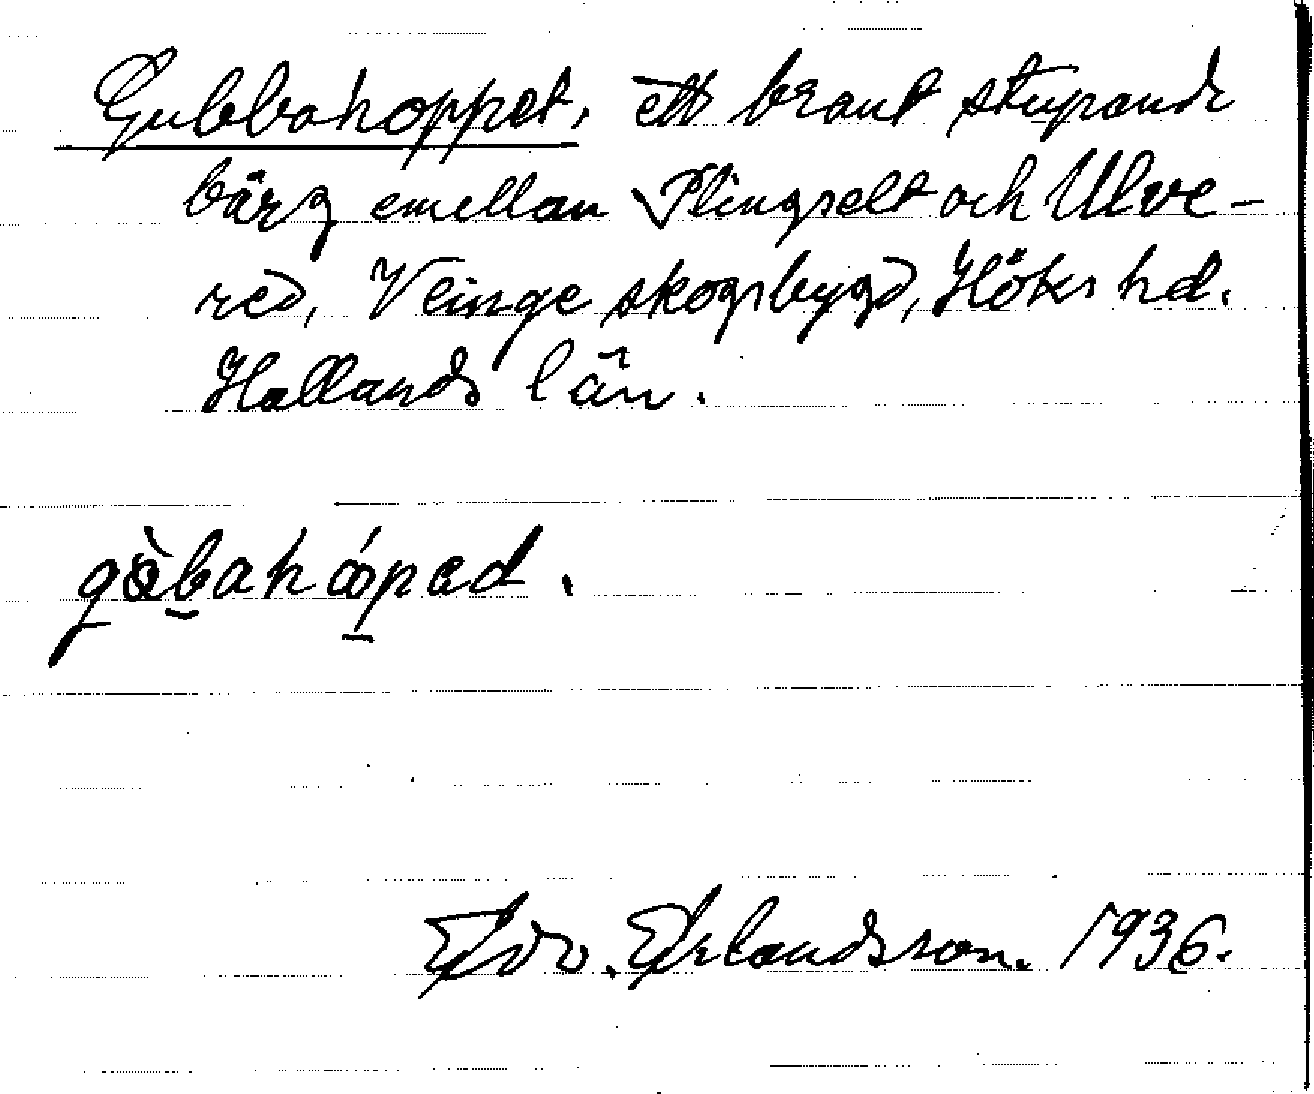 Gubbahoppet, ett brant stupande
bärg emellan Plingselt och Ulve-
red, Veinge skogsbygd, Höks hd.
Hallands län.
Edv. Erlandsson. 1936.